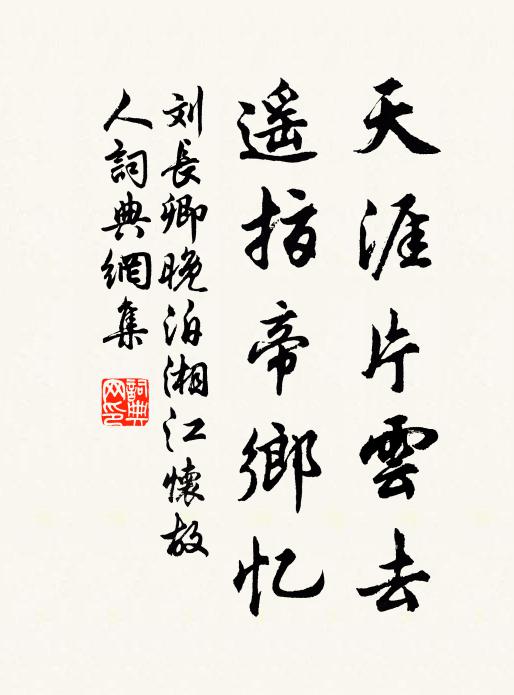 天涯片雲去
遥指帝鄉忆
刘長卿晚泊湘江懷故
人詞典網集
詞典
网印